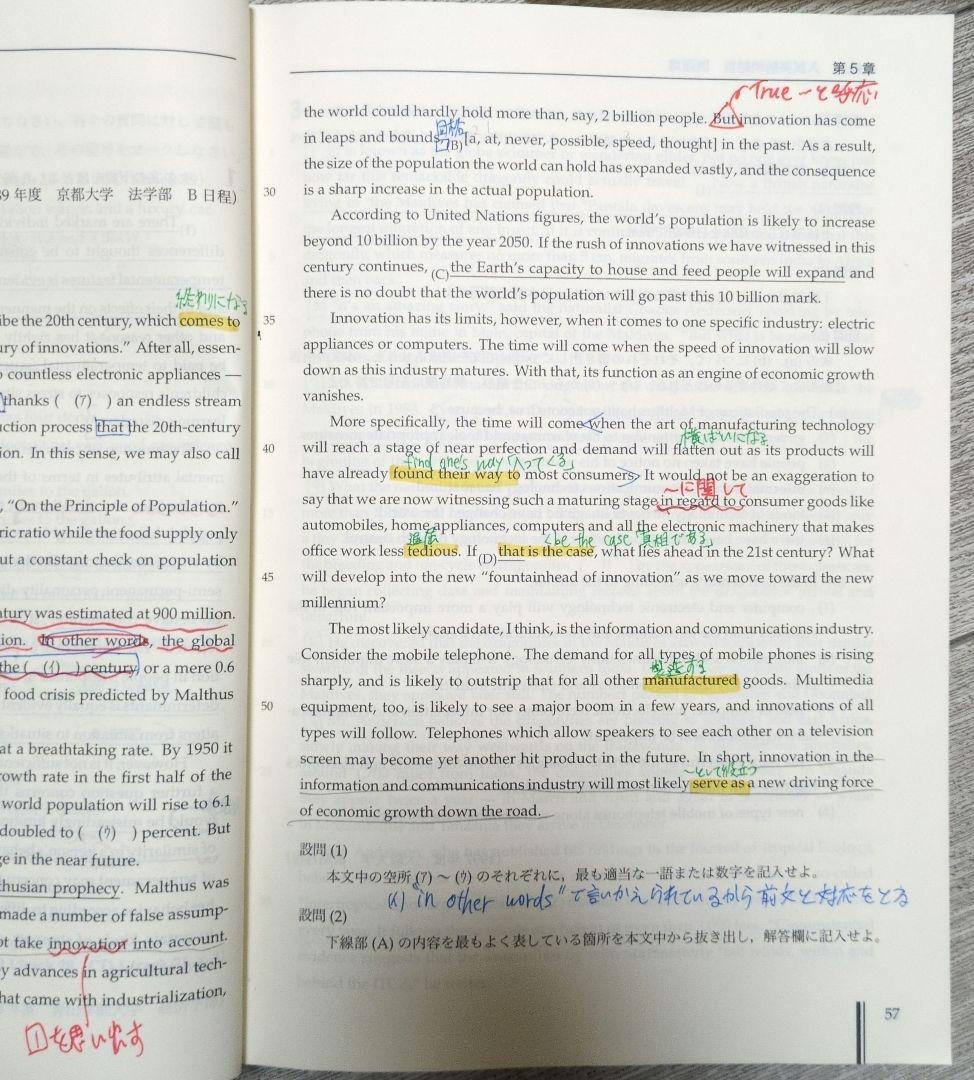 9 年度　京都大学　法学部　B 日程)
終わりになる
ibe the 20th century, which comes to
ury of innovations.” After all, essen-
o countless electronic appliances —
thanks (　(ｱ)　) an endless stream
uction process that the 20th-century
ion. In this sense, we may also call
, “On the Principle of Population.”
ric ratio while the food supply only
ut a constant check on population
tury was estimated at 900 million.
ion. In other words, the global
the (　(ｲ)　) century, or a mere 0.6
food crisis predicted by Malthus
at a breathtaking rate. By 1950 it
rowth rate in the first half of the
world population will rise to 6.1
doubled to (　(ｳ)　) percent. But
ge in the near future.
thusian prophecy. Malthus was
made a number of false assump-
ot take innovation into account.
y advances in agricultural tech-
hat came with industrialization,
①を思い出す
第 5 章
True 〜と呼応
the world could hardly hold more than, say, 2 billion people. But innovation has come
in leaps and bounds (B)[a, at, never, possible, speed, thought] in the past. As a result,
the size of the population the world can hold has expanded vastly, and the consequence
30 is a sharp increase in the actual population.
According to United Nations figures, the world’s population is likely to increase
beyond 10 billion by the year 2050. If the rush of innovations we have witnessed in this
century continues, (C)the Earth’s capacity to house and feed people will expand and
there is no doubt that the world’s population will go past this 10 billion mark.
35 Innovation has its limits, however, when it comes to one specific industry: electric
appliances or computers. The time will come when the speed of innovation will slow
down as this industry matures. With that, its function as an engine of economic growth
vanishes.
More specifically, the time will come when the art of manufacturing technology
横ばいになる
40 will reach a stage of near perfection and demand will flatten out as its products will
find one's way「入ってくる」
have already found their way to most consumers. It would not be an exaggeration to
〜に関して
say that we are now witnessing such a maturing stage in regard to consumer goods like
automobiles, home appliances, computers and all the electronic machinery that makes
退屈
be the case「真相である」
office work less tedious. If (D)that is the case, what lies ahead in the 21st century? What
45 will develop into the new “fountainhead of innovation” as we move toward the new
millennium?
The most likely candidate, I think, is the information and communications industry.
Consider the mobile telephone. The demand for all types of mobile phones is rising
製造する
sharply, and is likely to outstrip that for all other manufactured goods. Multimedia
50 equipment, too, is likely to see a major boom in a few years, and innovations of all
types will follow. Telephones which allow speakers to see each other on a television
screen may become yet another hit product in the future. In short, innovation in the
〜として役立つ
information and communications industry will most likely serve as a new driving force
of economic growth down the road.
設問 (1)
本文中の空所 (ｱ) ～ (ｳ) のそれぞれに，最も適当な一語または数字を記入せよ。
(ｲ) "in other words" で言いかえられているから前文と対応をとる
設問 (2)
下線部 (A) の内容を最もよく表している箇所を本文中から抜き出し，解答欄に記入せよ。
57